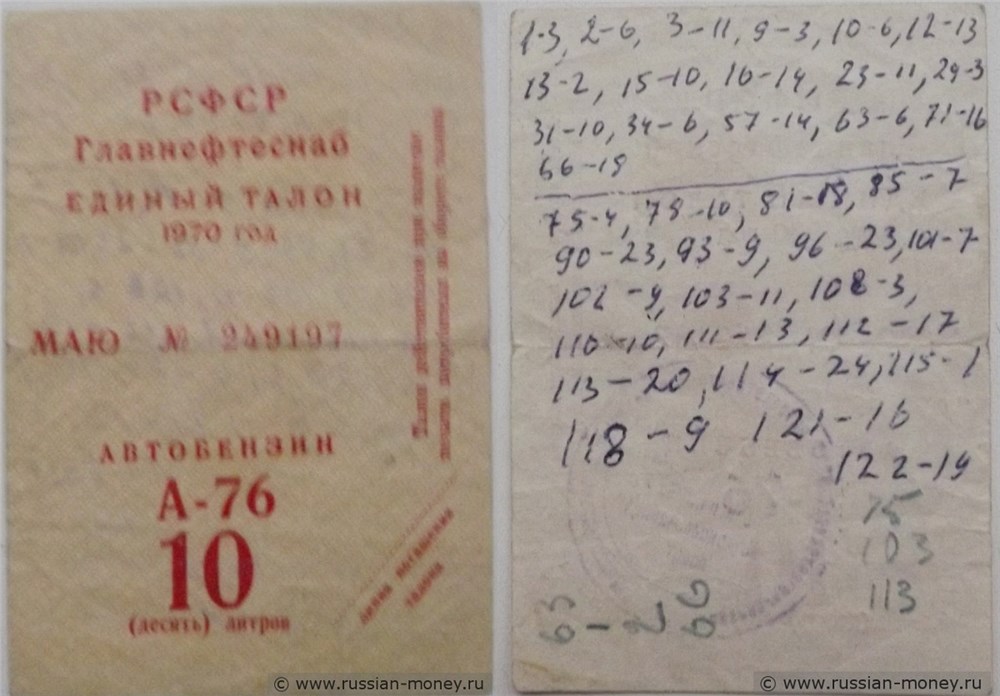 РСФСР
Главнефтеснаб
ЕДИНЫЙ ТАЛОН
1970 год
МАЮ № 249197
АВТОБЕНЗИН
А-76
10
(десять) литров
Талон действителен при наличии
печати потребителя на обороте талона
линия погашения
талона
© www.russian-money.ru
1-3, 2-6, 3-11, 9-3, 10-6, 12-13
13-2, 15-10, 16-14, 23-11, 29-3
31-10, 34-6, 57-14, 63-6, 71-16
66-19
75-4, 79-10, 81-18, 85-7
90-23, 93-9, 96-23, 101-7
102-9, 103-11, 108-3,
110-10, 111-13, 112-17
113-20, 114-24, 115-1
118-9 121-16
122-19
75
103
113
63
-
2
66
© www.russian-money.ru